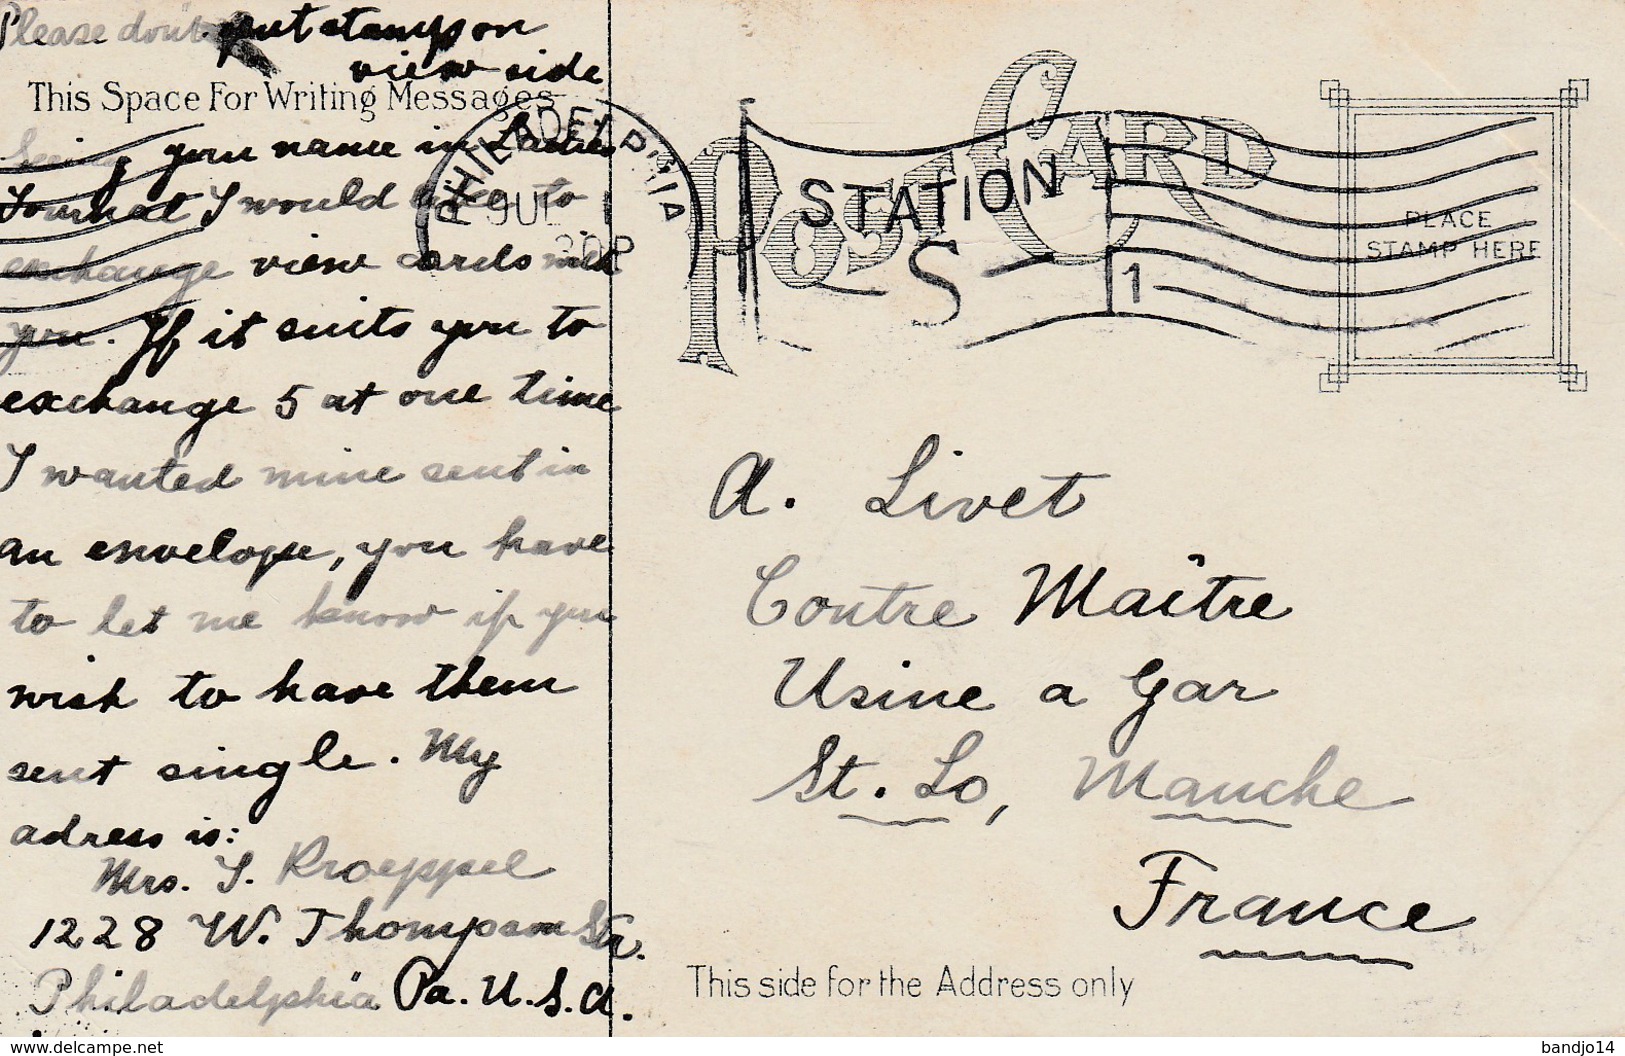 Please don't put stamp on
view side
This Space For Writing Messages
Seeing your name in Ladies
Journal I would like to
exchange view cards with
you. If it suits you to
exchange 5 at one time
I wanted mine sent in
an envelope, you have
to let me know if you
wish to have them
sent single. My
adress is:
Mrs. I. Kroeppel
1228 W. Thompson Str.
Philadelphia Pa. U.S.A.
PHILADELPHIA
JUL
30 P
STATION
S 1
POST CARD
PLACE
STAMP HERE
A. Livet
Contre Maître
Usine a Gar
St. Lo, Manche
France
This side for the Address only
www.delcampe.net
bandjo14